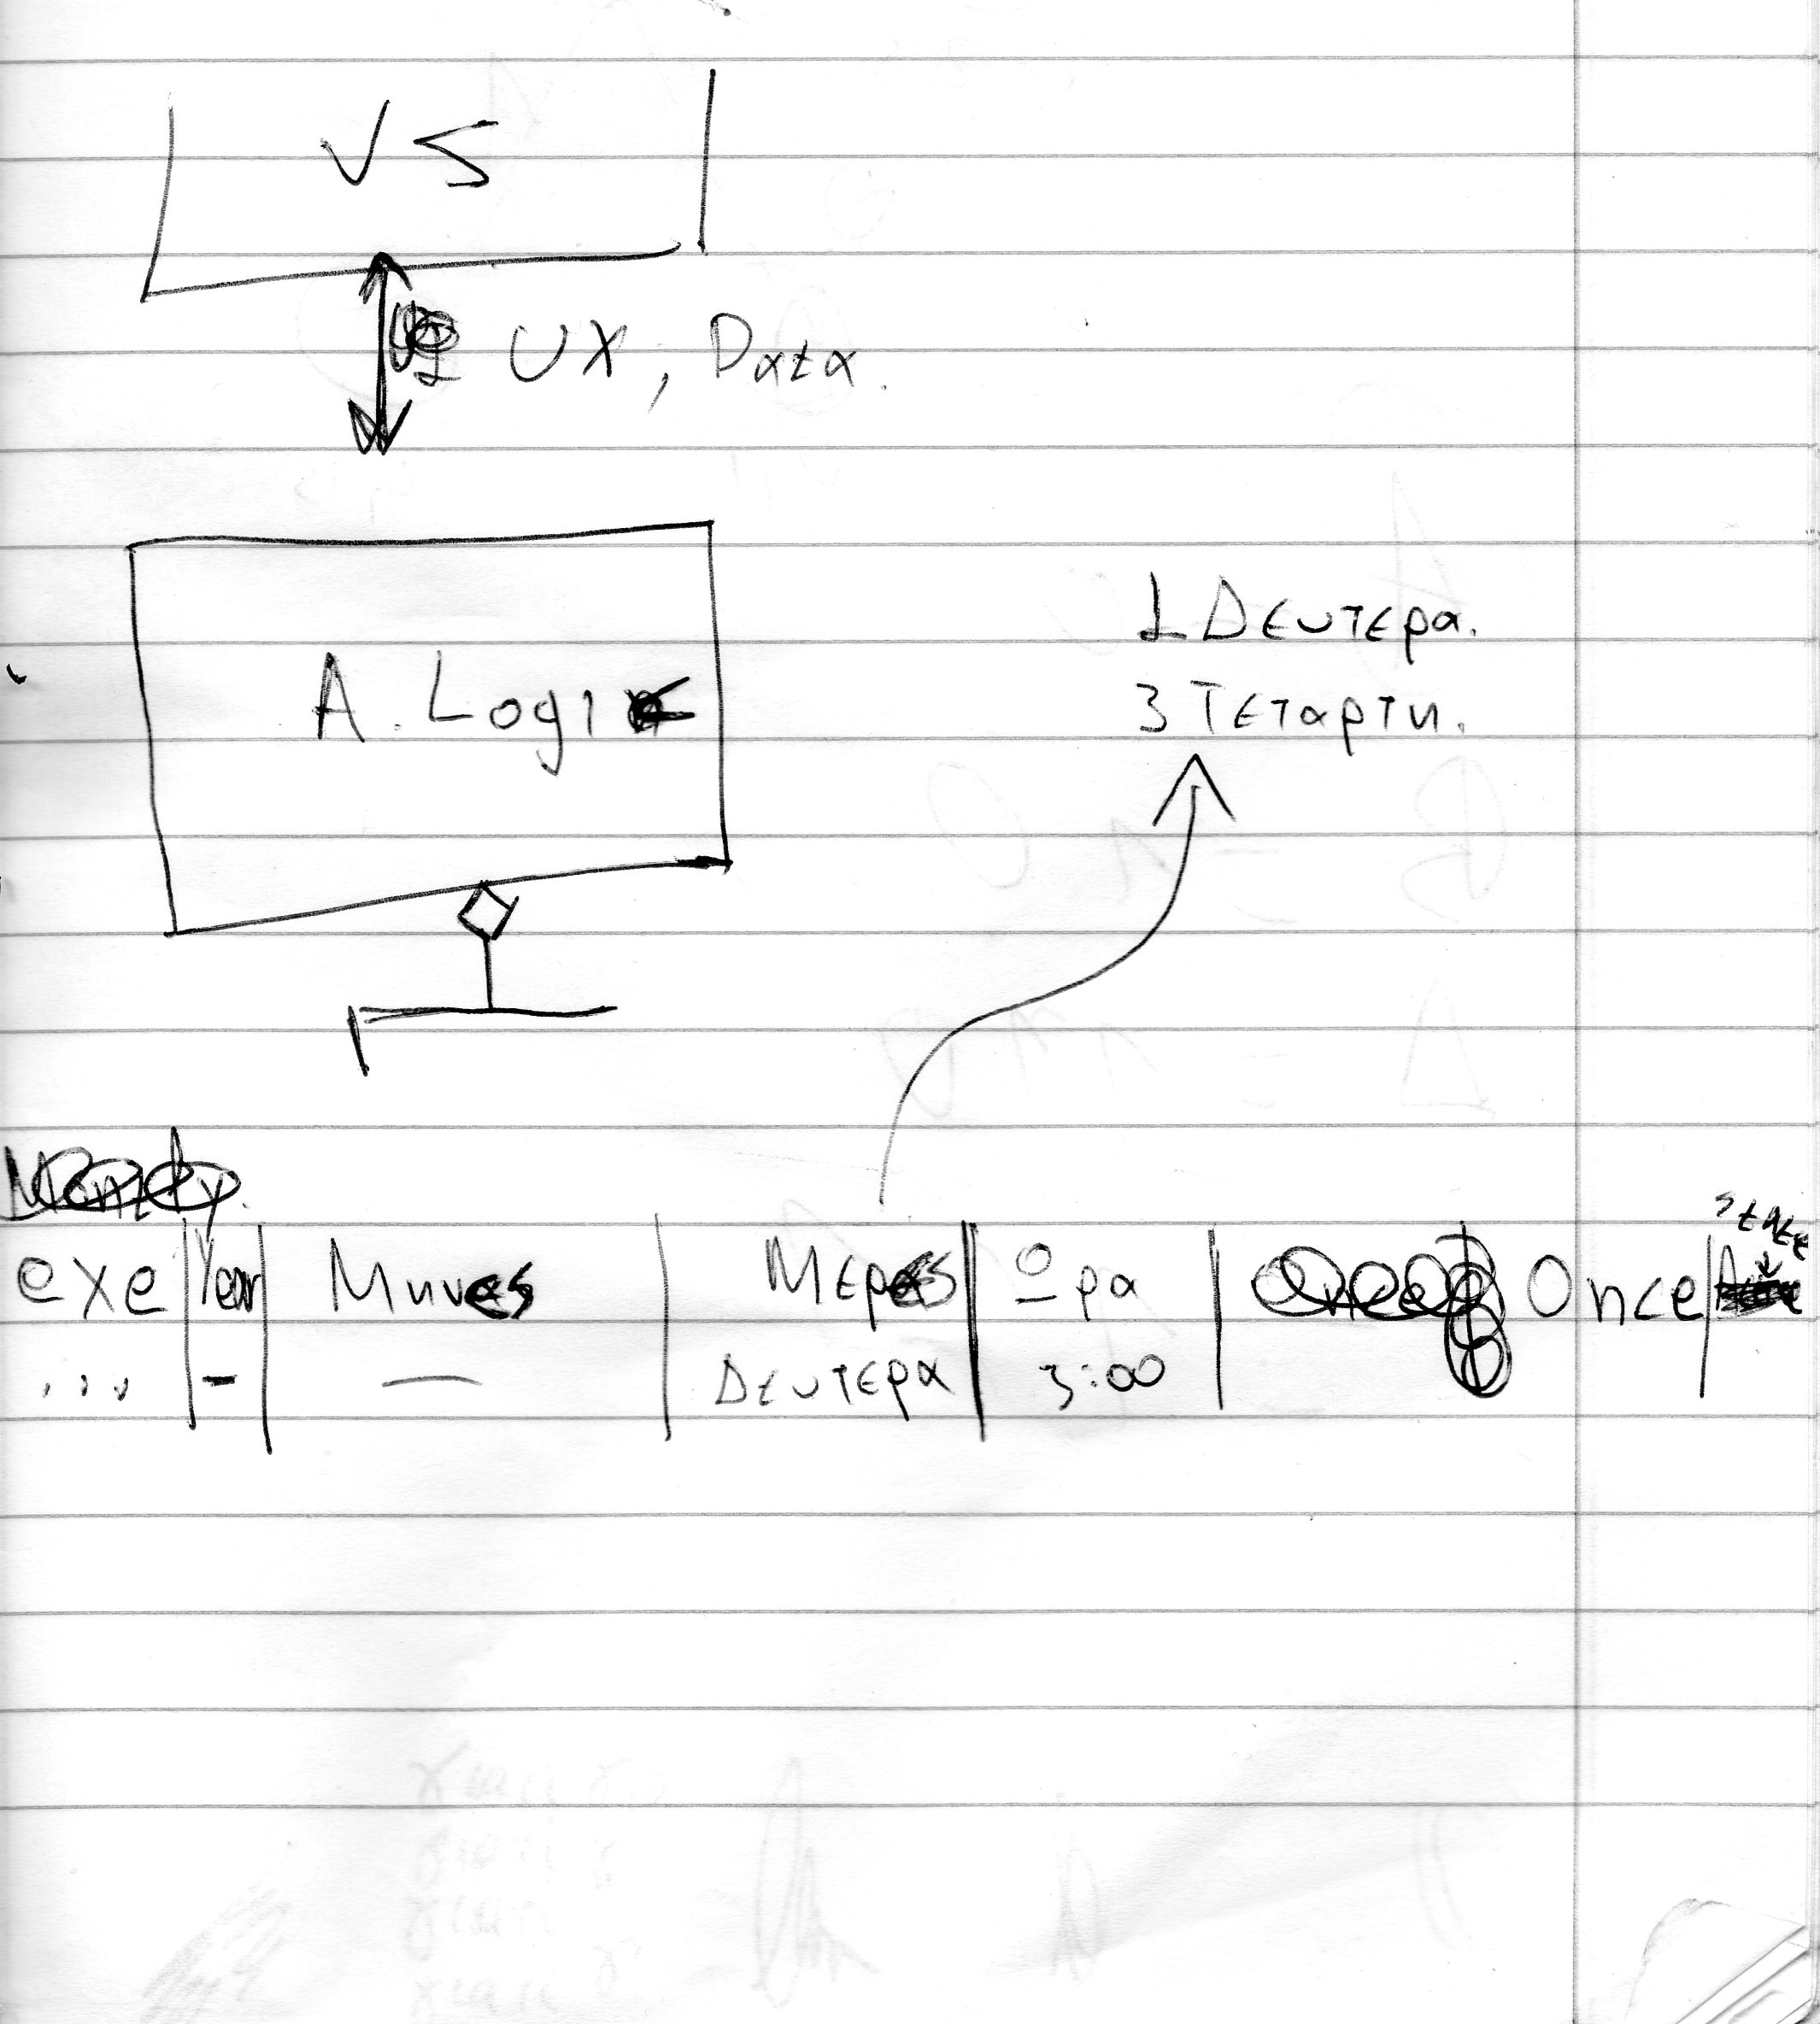 VS
UX, Data.
A. Logic
1 Δευτερα.
3 Τεταρτη.
exe | Year | Μηνες | Μερες | Ωρα | Once | State
... | - | — | Δευτερα | 3:00